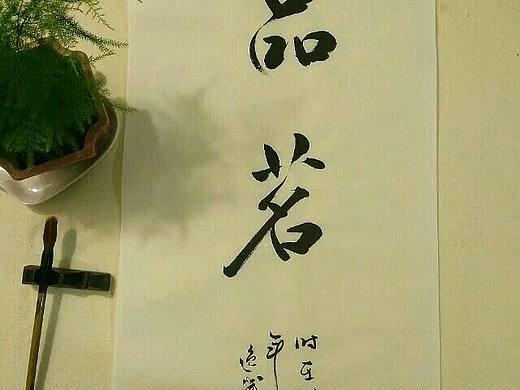 品茗
时在
年